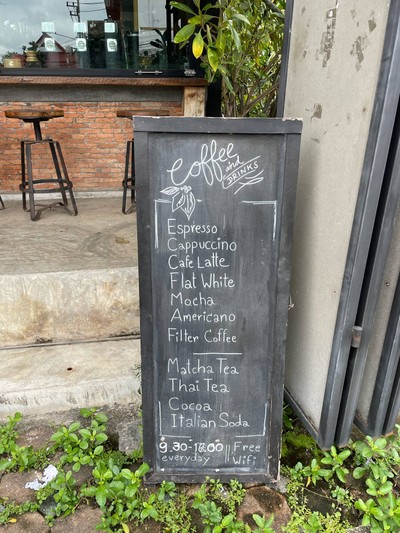 Coffee
and
DRINKS
Espresso
Cappuccino
Cafe Latte
Flat White
Mocha
Americano
Filter Coffee
Matcha Tea
Thai Tea
Cocoa
Italian Soda
everyday
Free
WiFi